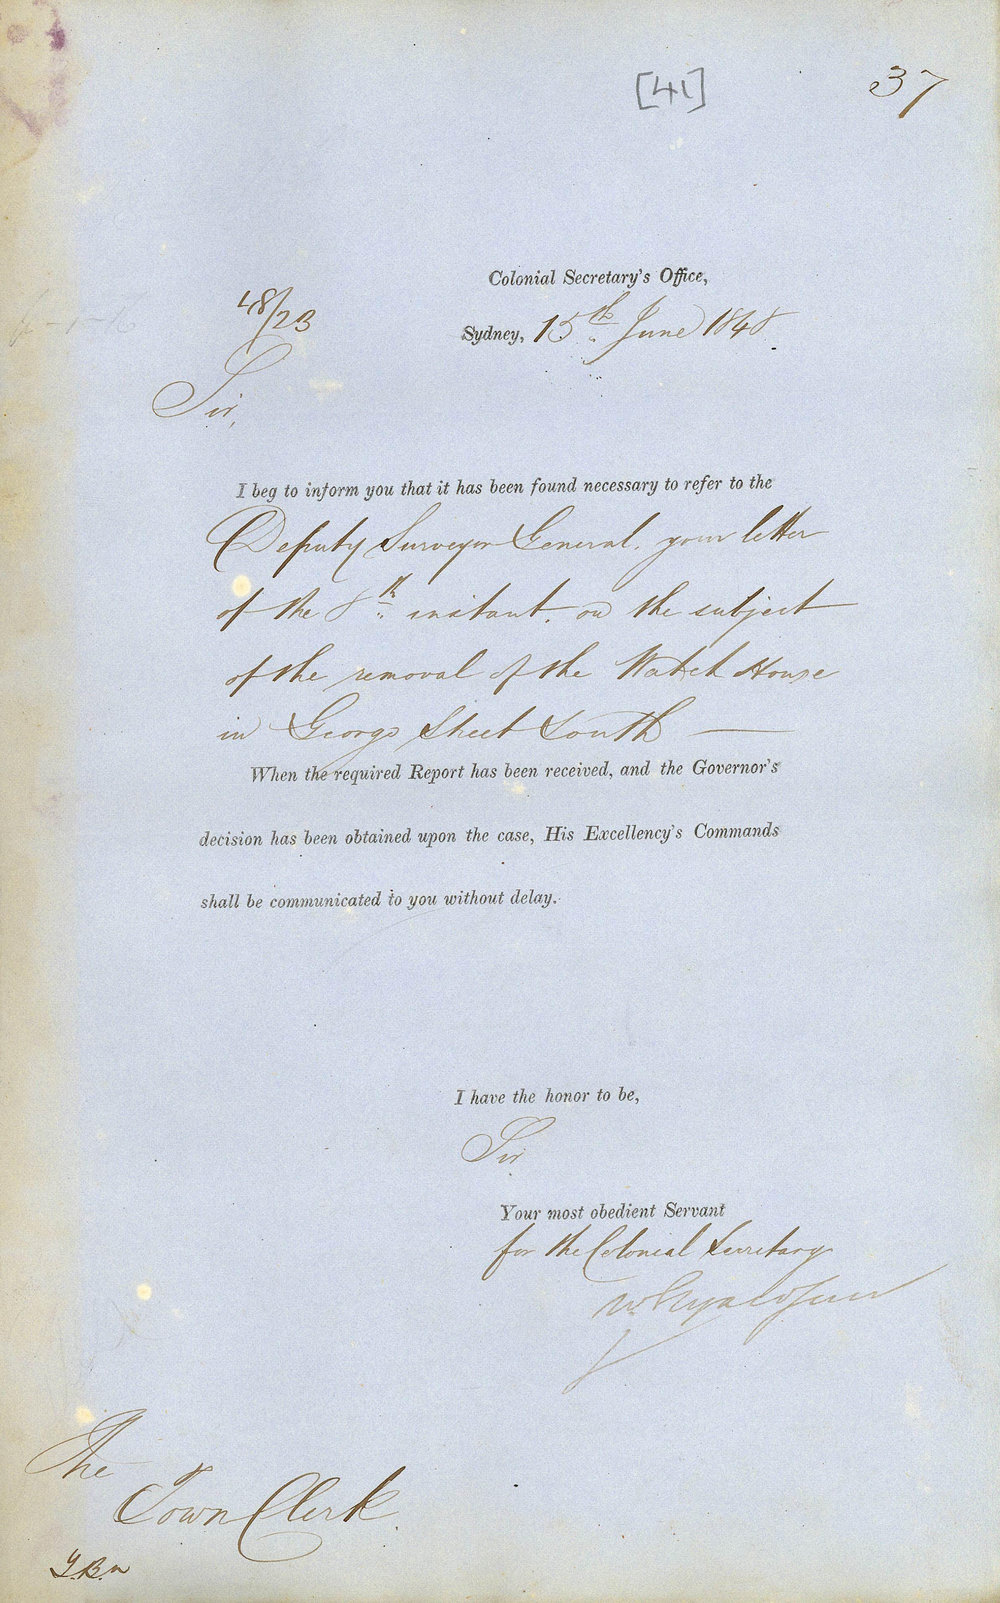 [41]
37
Colonial Secretary's Office,
48/23
Sydney, 15th June 1848
Sir,
I beg to inform you that it has been found necessary to refer to the
Deputy Surveyor General, your letter
of the 8th instant, on the subject
of the removal of the Watch House
in George Street South —
When the required Report has been received, and the Governor's
decision has been obtained upon the case, His Excellency's Commands
shall be communicated to you without delay.
I have the honor to be,
Sir
Your most obedient Servant
for the Colonial Secretary
The
Town Clerk